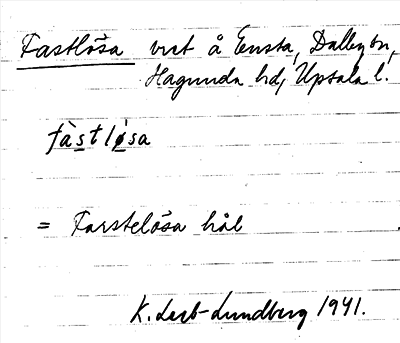 Fastlösa urt å Ensta, Dalby sn,
Hagunda hd, Upsala l.
fàstlø̀sa
= Farstelösa hål
K. Leib-Lundberg 1941.